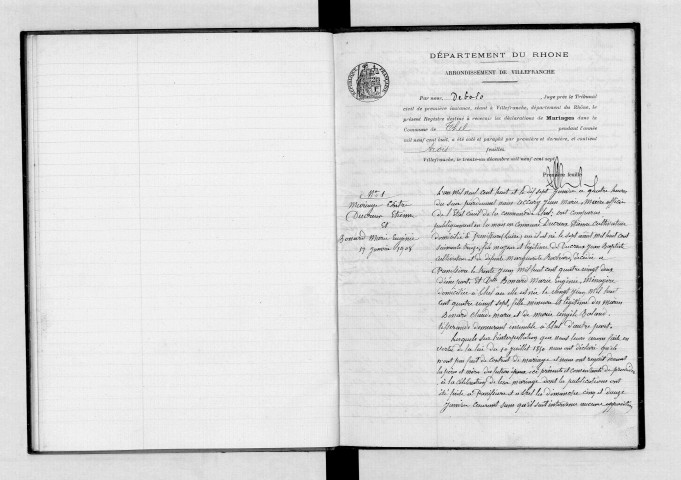 DÉPARTEMENT DU RHONE
ARRONDISSEMENT DE VILLEFRANCHE
Par nous, Juge près le Tribunal
civil de première instance, séant à Villefranche, département du Rhône, le
présent Registre destiné à recevoir les déclarations de Mariages dans la
Commune de Thel pendant l'année
mil neuf cent huit, a été coté et paraphé par première et dernière, et contient
trois feuillets.
Villefranche, le trente-un décembre mil neuf cent sept.
Premier feuillet
N° 1
Mariage Entre
Ducreux Etienne
Et
Bonnard Marie Eugénie
17 janvier 1908
L'an mil neuf cent huit et le dix sept janvier à quatre heures
du soir pardevant nous Jean Marie Maire officier
de l'Etat Civil de la Commune de Thel, ont comparu
publiquement en la maison commune Ducreux Etienne cultivateur
domicilié à où il est né le sept août mil huit cent
soixante fils majeur et légitime de Ducreux Jean Baptiste
cultivateur et de défunte Marguerite décédée à
le trente juin mil huit cent quatre vingt deux
d'une part. Et Dlle Bonnard Marie Eugénie, Ménagère
domiciliée à Thel où elle est née le vingt juin mil huit
cent quatre vingt sept, fille mineure et légitime des mariés
Bonnard Claude Marie et de Marie
demeurant ensemble à Thel d'autre part.
Lesquels sur l'interpellation que nous leur avons faite en
vertu de la loi du 10 juillet 1850 nous ont déclaré qu'ils
n'ont pas fait de contrat de mariage et nous ont requis
les père et mère des futurs époux ici présents et consentants de procéder
à la célébration de leur mariage dont les publications ont
été faites à et à Thel les dimanches cinq et douze
janvier courant sans qu'il soit intervenu aucune opposition